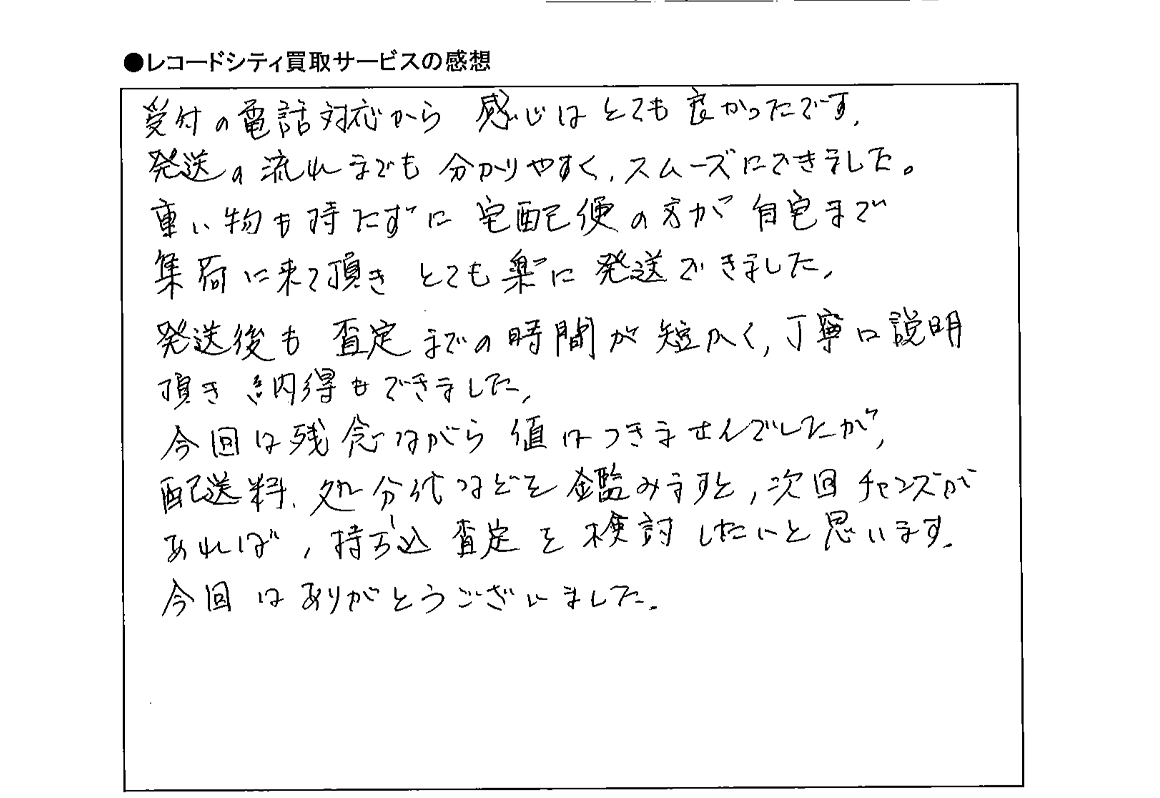 ●レコードシティ買取サービスの感想
受付の電話対応から 感じはとても良かったです.
発送の流れまでも 分かりやすく、スムーズにできました。
重い物も持たずに 宅配便の方が 自宅まで
集荷に来て頂き とても楽に 発送できました.
発送後も 査定までの時間が 短かく, 丁寧に説明
頂き 納得もできました.
今回は残念ながら 値はつきませんでしたが,
配送料、処分代などを鑑みますと, 次回チャンスが
あれば, 持ち込 査定を検討したいと思います.
今回はありがとうございました.